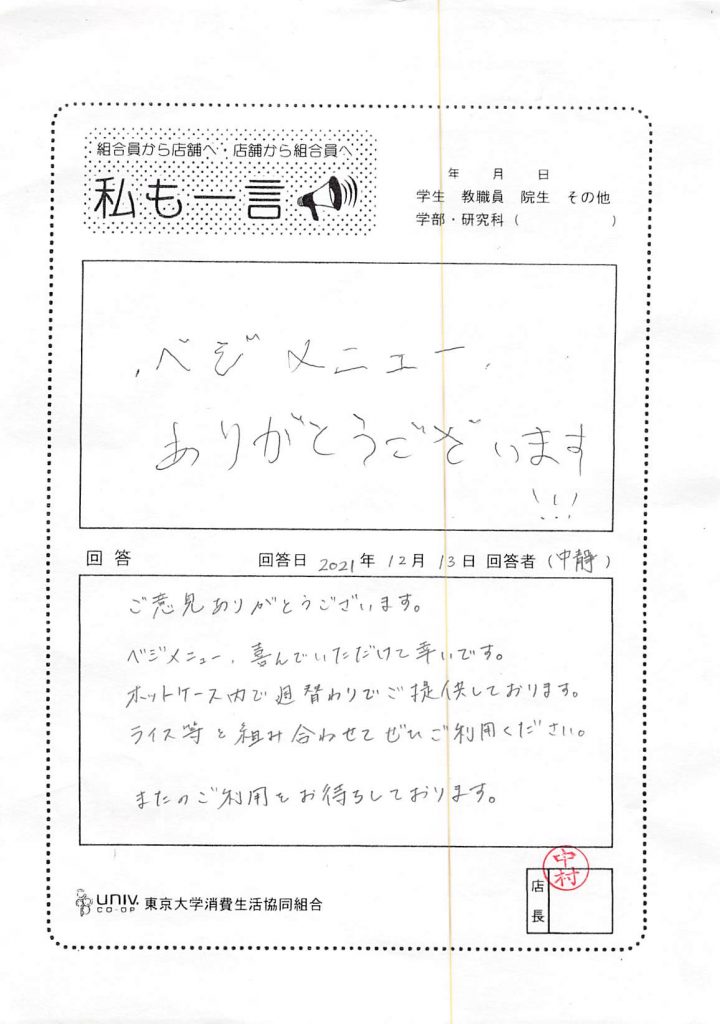 組合員から店舗へ・店舗から組合員へ
私も一言
年 月 日
学生 教職員 院生 その他
学部・研究科( )
、ベジメニュー、
ありがとうございます
!!!
回答 回答日 2021年 12月 13日 回答者(中静)
ご意見ありがとうございます。
ベジメニュー、喜んでいただけて幸いです。
ホットケース内で週替わりでご提供しております。
ライス等と組み合わせてぜひご利用ください。
またのご利用をお待ちしております。
中村
店長
UNIV. CO-OP 東京大学消費生活協同組合